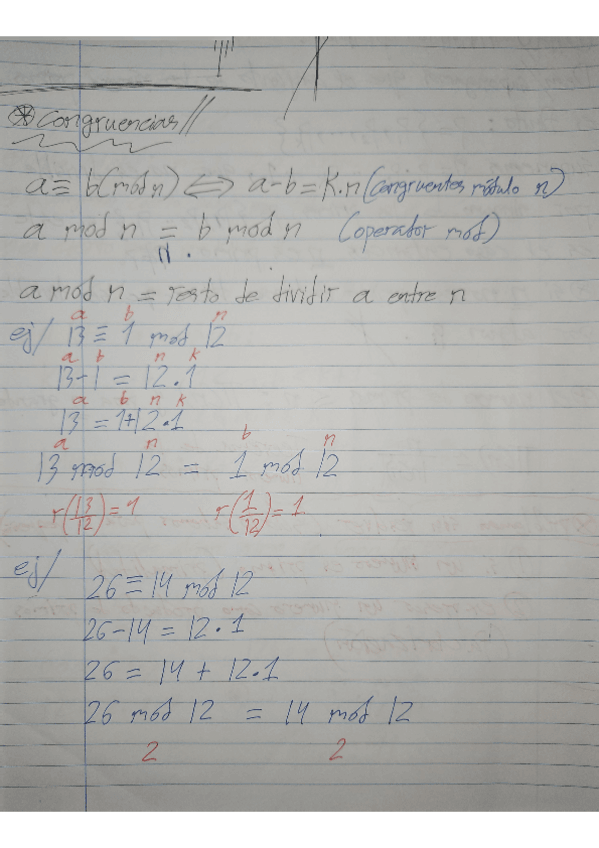 ⊛ Congruencias //
a ≡ b (mod n) ⇔ a-b = K.n (Congruentes módulo n)
a mod n = b mod n (operador mod)
a mod n = resto de dividir a entre n
a b n
ej/ 13 ≡ 1 mod 12
a b n k
13-1 = 12.1
a b n k
13 = 1+12.1
a n b n
13 mod 12 = 1 mod 12
r(13/12)=1 r(1/12)=1
ej/
26 ≡ 14 mod 12
26-14 = 12.1
26 = 14 + 12.1
26 mod 12 = 14 mod 12
2 2